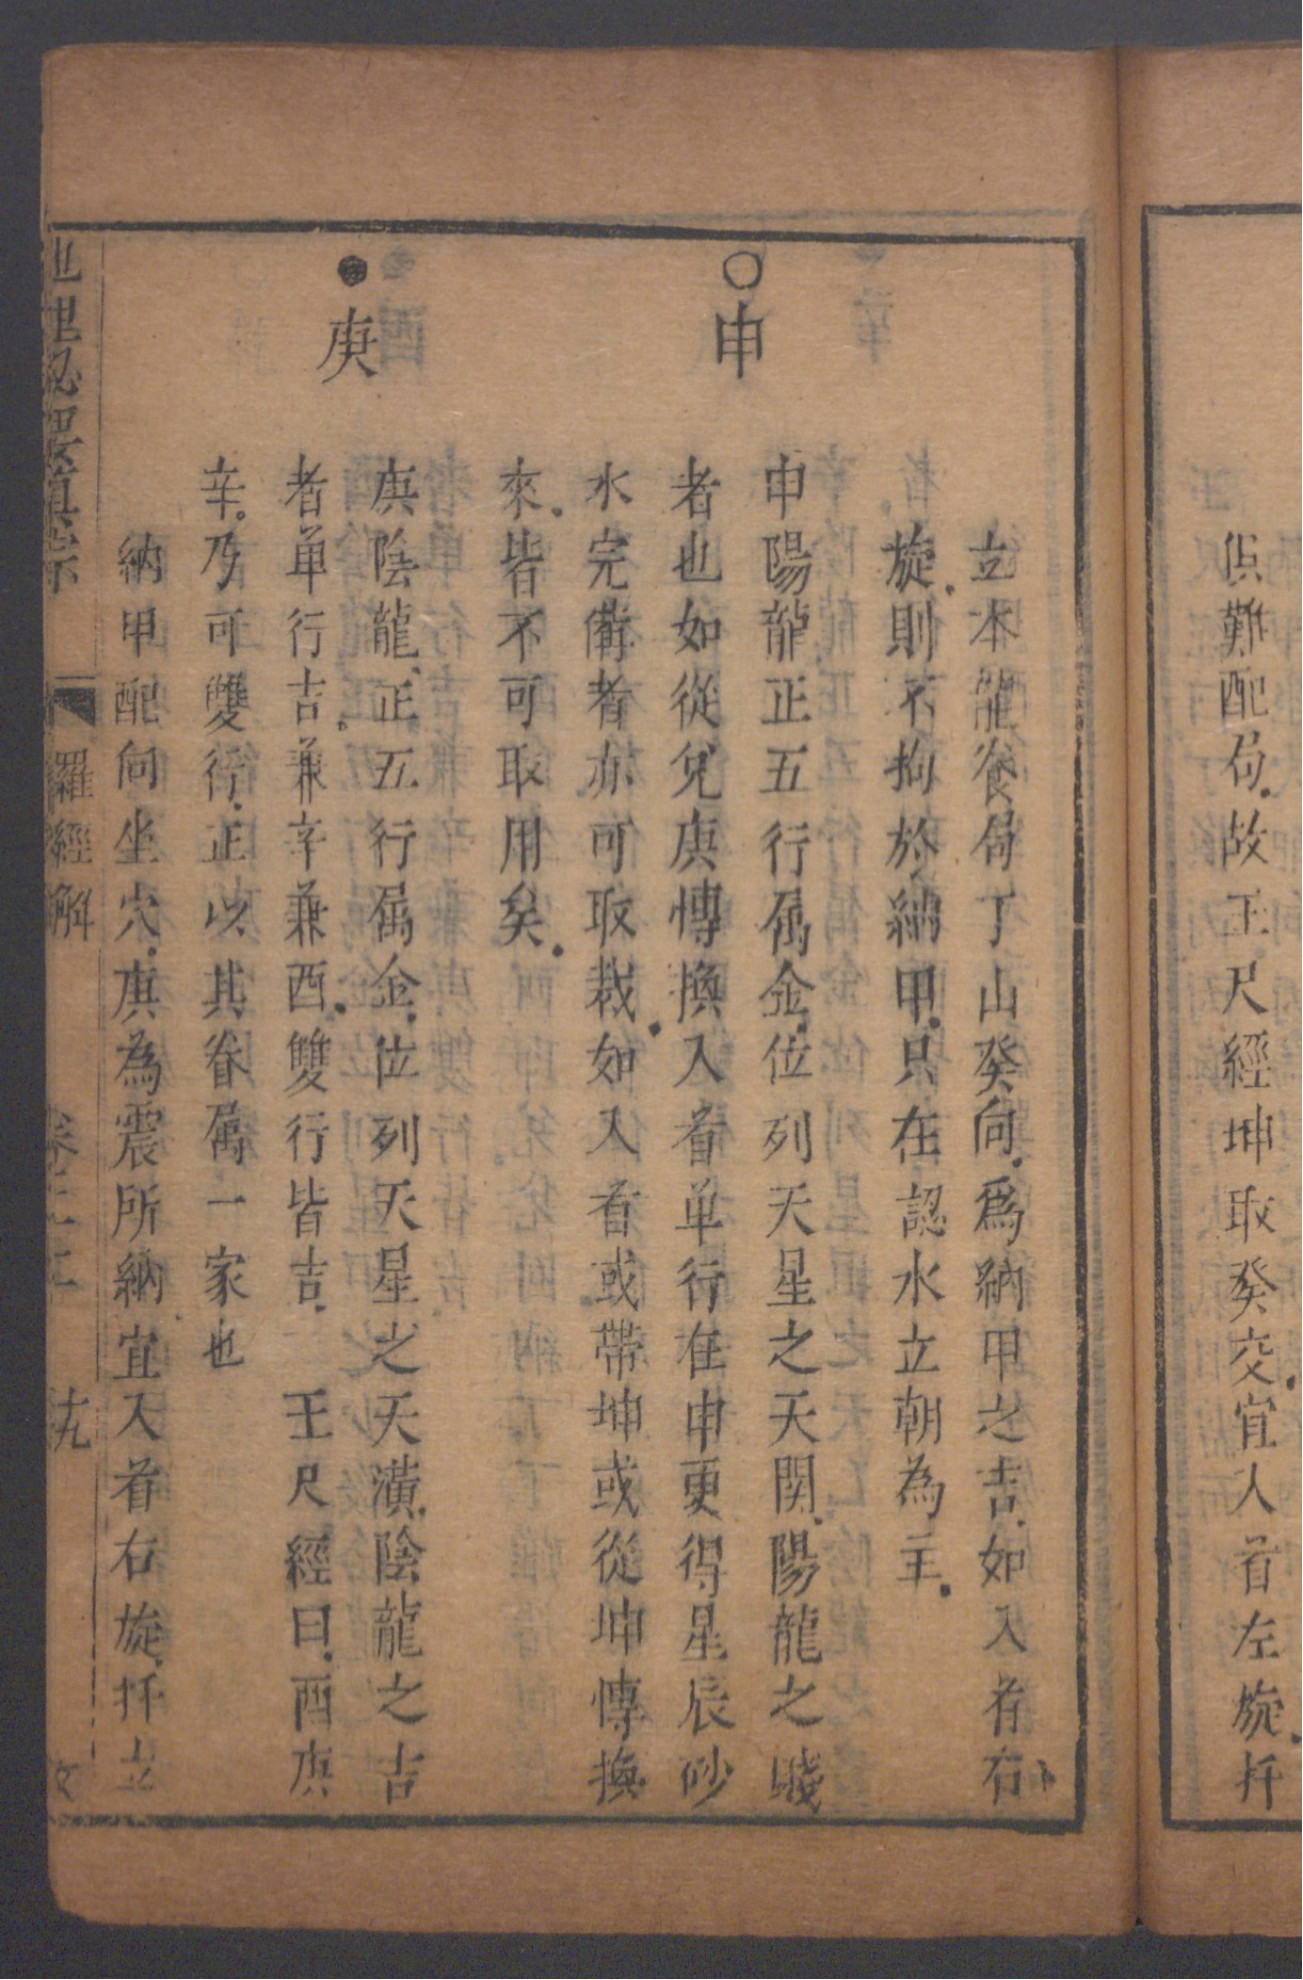 俱難配局故玉尺經坤取癸交宜入首左旋扦
立本龍養局丁山癸向爲納甲之吉如入首右
旋則不拘於納甲只在認水立朝為主
○申
申陽龍正五行属金位列天星之天関陽龍之賤
者也如從兌庚傳換入首单行在申更得星辰砂
水完俻者亦可取裁如入首或帶坤或從坤傳換
來皆不可取用矣
●庚
庚陰龍正五行属金位列天星之天潢陰龍之吉
者单行吉兼辛兼酉雙行皆吉 玉尺經曰酉庚
辛乃可雙行正以其眷属一家也
納甲配向坐穴庚為震所納宜入首右旋扦立
地理秘要真宗 羅經解 卷之上 十九 文